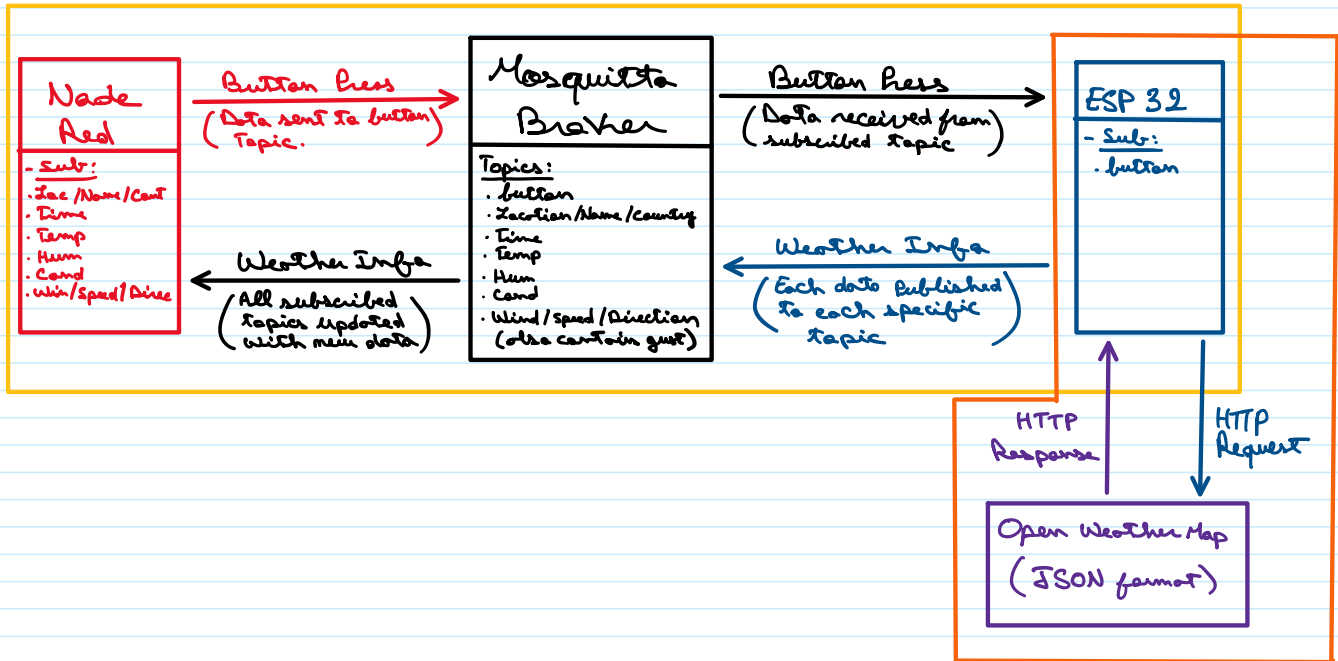 Node
Red
- Sub:
· Loc/Name/Cont
· Time
· Temp
· Hum
· Cond
· Win/Speed/Direc
Button Press
(Data sent to button
Topic.)
Weather Info
(All subscribed
topics updated
with new data)
Mosquitto
Broker
Topics:
· button
· Location/Name/Country
· Time
· Temp
· Hum
· Cond
· Wind/Speed/Direction
(also contain gust)
Button Press
(Data received from
subscribed topic)
Weather Info
(Each data Published
to each specific
topic)
ESP 32
- Sub:
· button
HTTP
Response
HTTP
Request
Open Weather Map
(JSON format)